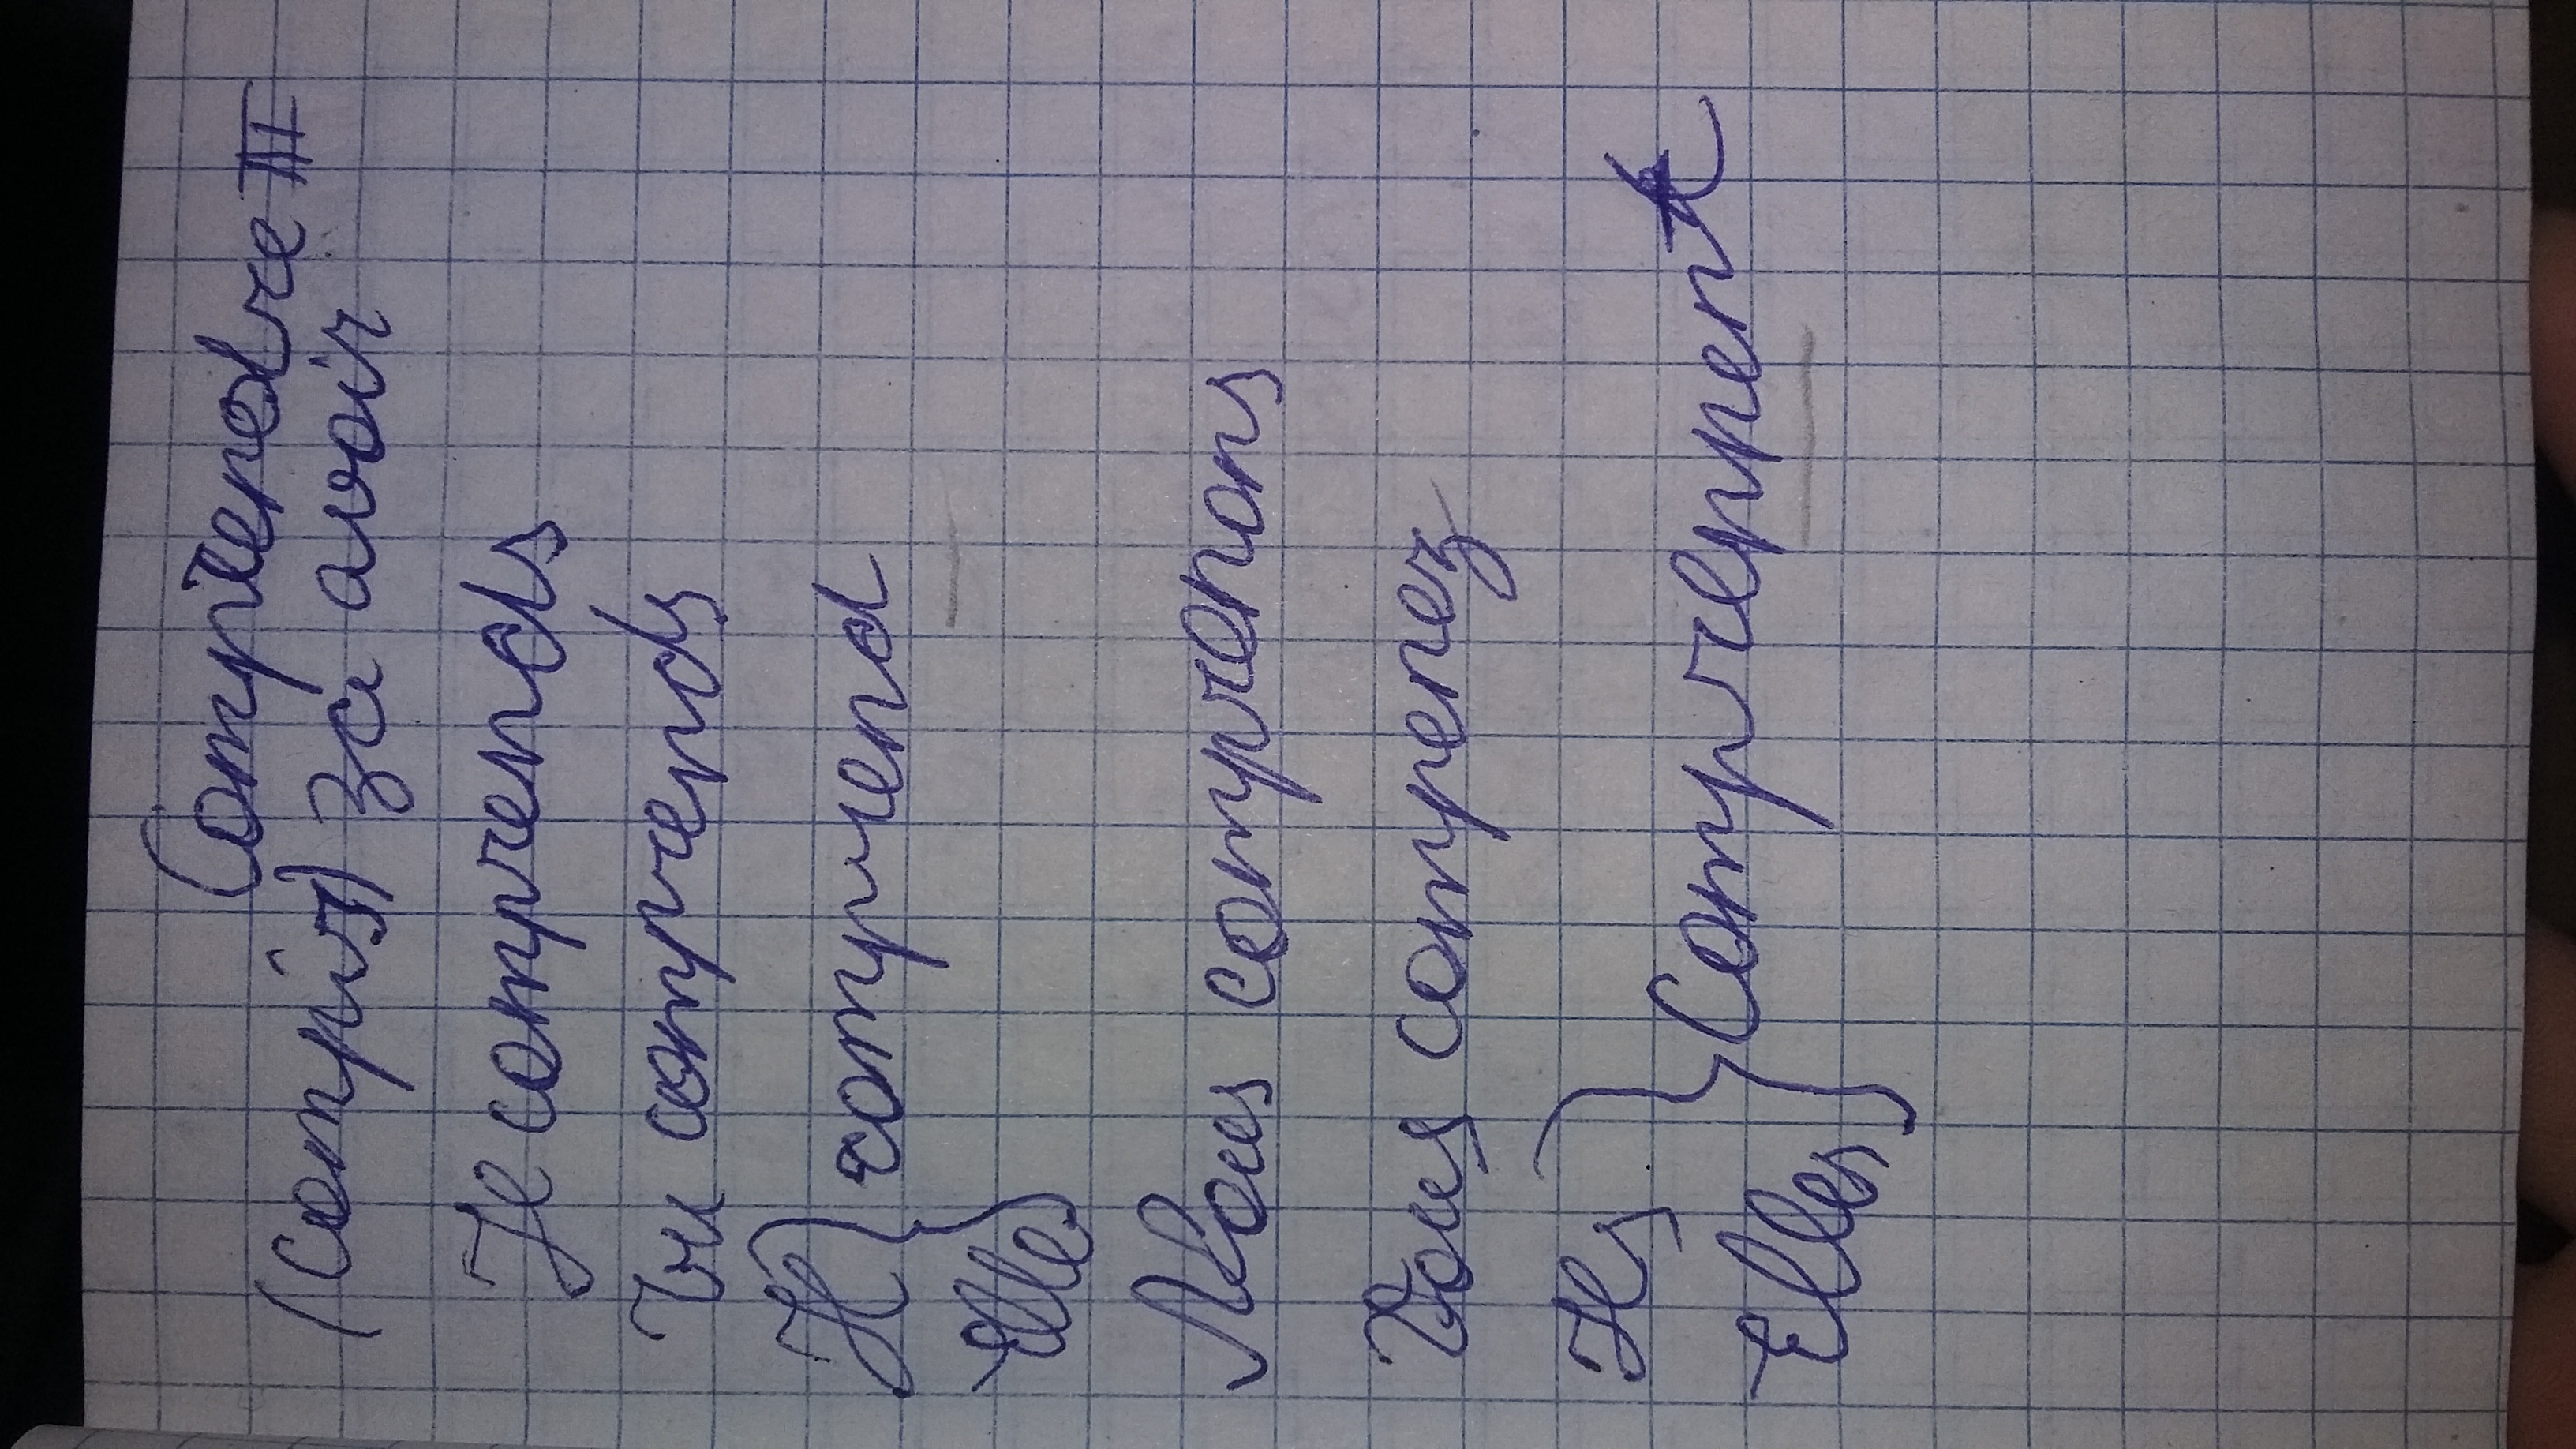 Comprendre III
(compris) за avoir
Je comprends
Tu comprends
Il } comprend
Elle
Nous comprenons
Vous compenez
Ils } Comprennent
Elles